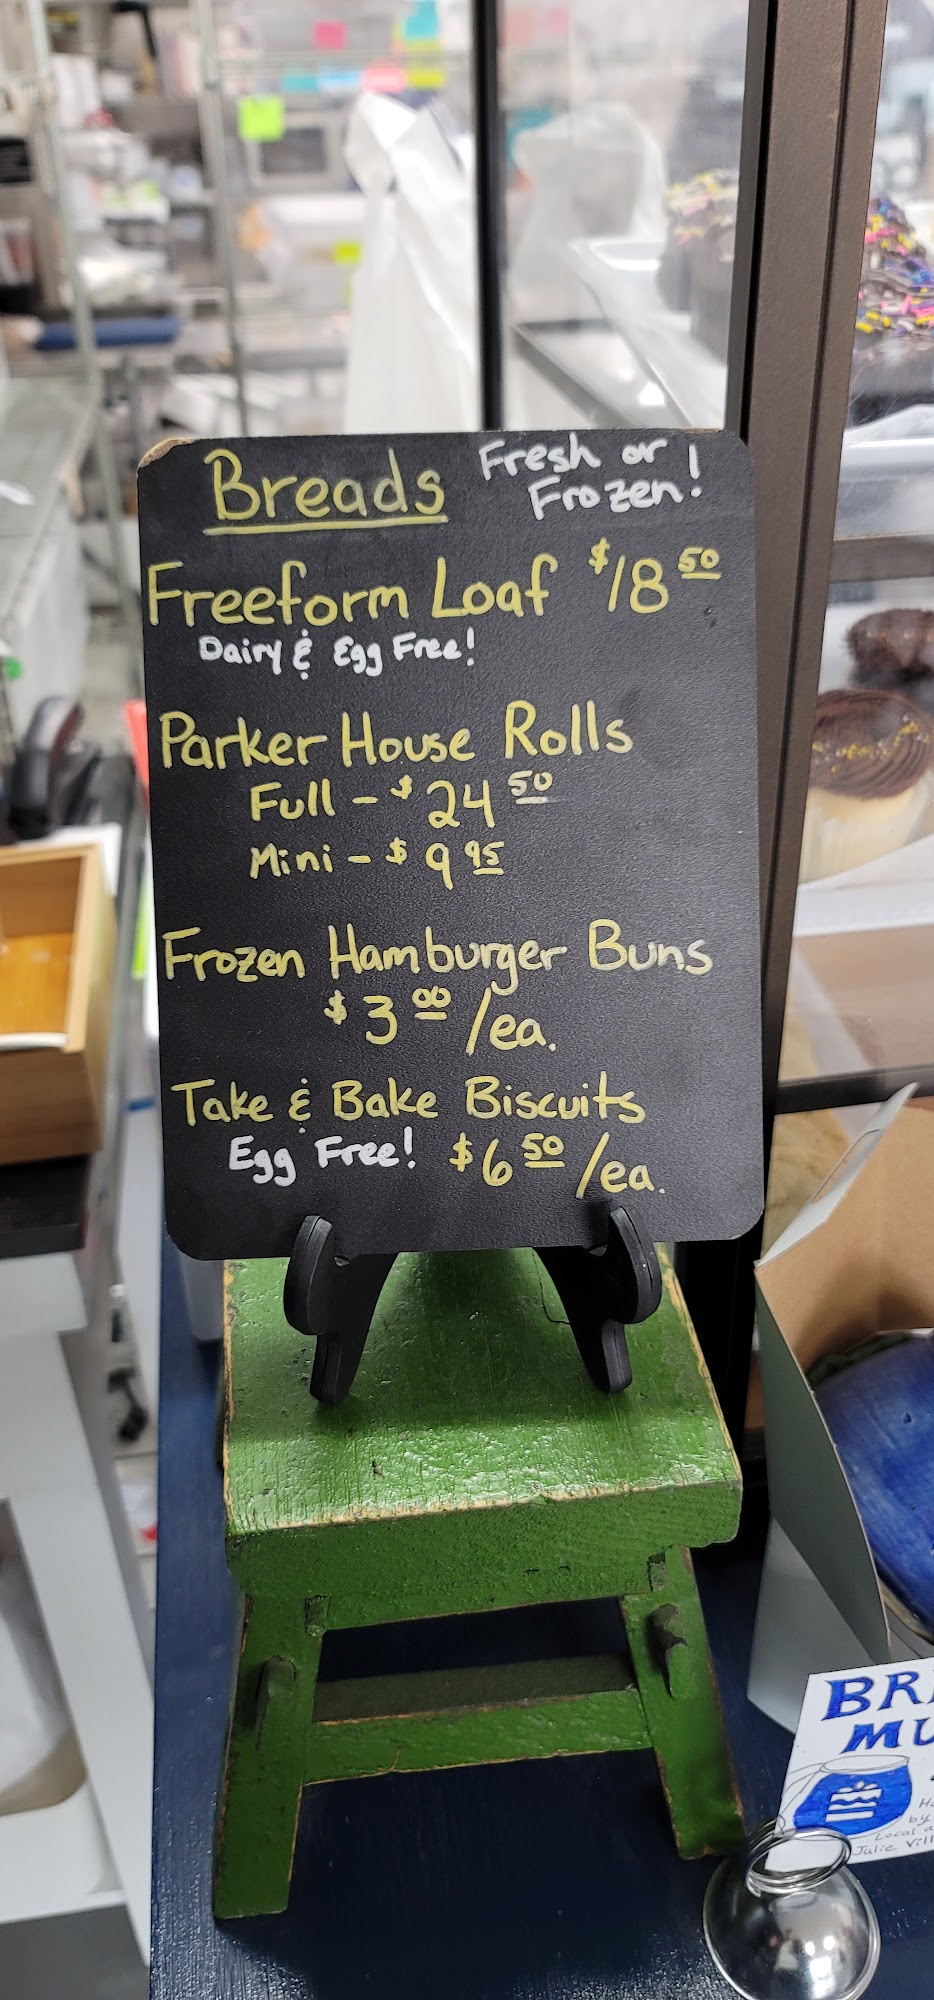 Breads Fresh or Frozen!
Freeform Loaf $18 50
Dairy & Egg Free!
Parker House Rolls
Full - $24 50
Mini - $9 95
Frozen Hamburger Buns
$3 00 /ea.
Take & Bake Biscuits
Egg Free! $6 50 /ea.
Local
Julie